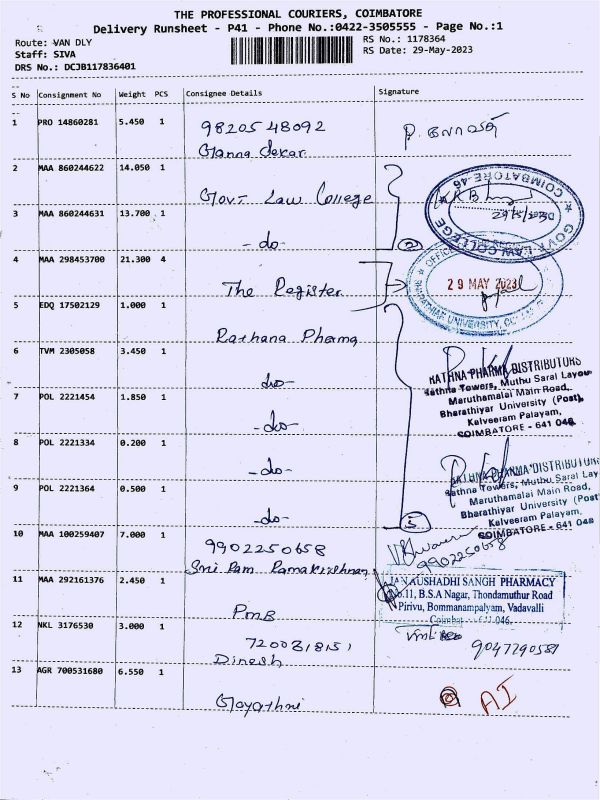 THE PROFESSIONAL COURIERS, COIMBATORE
Delivery Runsheet - P41 - Phone No.:0422-3505555 - Page No.:1
Route: VAN DLY
RS No.: 1178364
Staff: SIVA
RS Date: 29-May-2023
DRS No.: DCJB117836401
S No Consignment No Weight PCS Consignee Details Signature
1 PRO 14860281 5.450 1 9820548092
2 MAA 860244622 14.050 1 Govt Law College
3 MAA 860244631 13.700 1 -do-
4 MAA 298453700 21.300 4 The Register
5 EDQ 17502129 1.000 1 Rathana Pharma
6 TVM 2305058 3.450 1 -do-
7 POL 2221454 1.850 1 -do-
8 POL 2221334 0.200 1 -do-
9 POL 2221364 0.500 1 -do-
10 MAA 100259407 7.000 1 9902250658
Sri Ram Ramakrishnan
11 MAA 292161376 2.450 1 PMB
12 NKL 3176530 3.000 1 7200818151
Dinesh
13 AGR 700531680 6.550 1 Gayathri
COIMBATORE-46
GOVT LAW COLLEGE
2
29 MAY 2023
BHARATHIAR UNIVERSITY
RATHNA PHARMA DISTRIBUTORS
Rathna Towers, Muthu Saral Layou
Maruthamalai Main Road,
Bharathiyar University (Post),
Kalveeram Palayam,
COIMBATORE - 641 046
RATHNA PHARMA DISTRIBUTORS
Rathna Towers, Muthu Saral Lay
Maruthamalai Main Road,
Bharathiyar University (Post
Kalveeram Palayam,
COIMBATORE - 641 046
5
9902250658
JANAUSHADHI SANGH PHARMACY
No.11, B.S.A Nagar, Thondamuthur Road
Pirivu, Bommanampalyam, Vadavalli
Coimbat
9047290581
AI